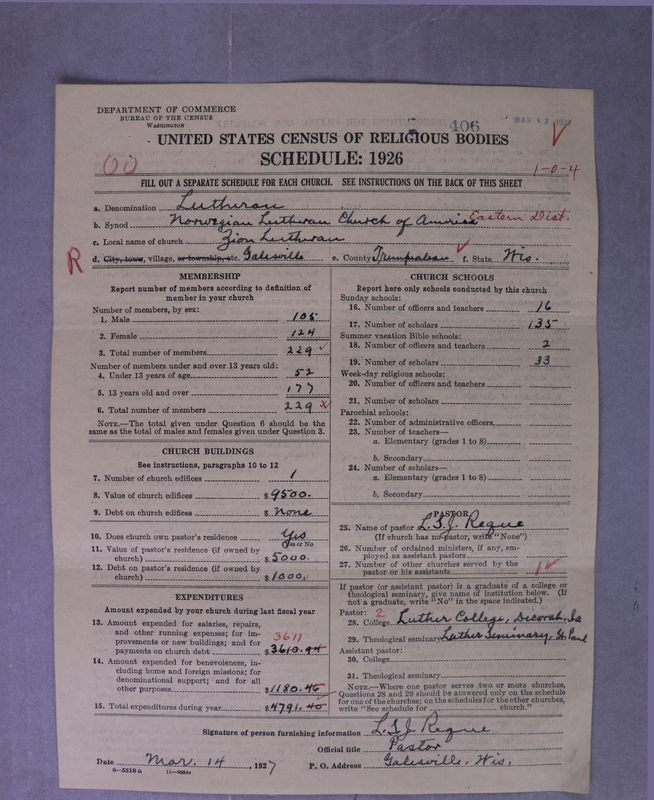 DEPARTMENT OF COMMERCE
BUREAU OF THE CENSUS
WASHINGTON
406
UNITED STATES CENSUS OF RELIGIOUS BODIES
SCHEDULE: 1926
00
1-0-4
FILL OUT A SEPARATE SCHEDULE FOR EACH CHURCH. SEE INSTRUCTIONS ON THE BACK OF THIS SHEET
a. Denomination Lutheran
b. Synod Norwegian Lutheran Church of America Eastern Dist.
c. Local name of church Zion Lutheran
R
d. City, town, village, or township, etc. Galesville e. County Trempealeau f. State Wis.
MEMBERSHIP
Report number of members according to definition of
member in your church
Number of members, by sex:
1. Male 105
2. Female 124
3. Total number of members 229
Number of members under and over 13 years old:
4. Under 13 years of age 52
5. 13 years old and over 177
6. Total number of members 229
NOTE.—The total given under Question 6 should be
same as the total of males and females given under Question 3.
CHURCH BUILDINGS
See instructions, paragraphs 10 to 12
7. Number of church edifices 1
8. Value of church edifices $ 9500.
9. Debt on church edifices $ None
10. Does church own pastor's residence Yes
Yes or No
11. Value of pastor's residence (if owned by
church) $ 5000.
12. Debt on pastor's residence (if owned by
church) $ 1000.
EXPENDITURES
Amount expended by your church during last fiscal year
13. Amount expended for salaries, repairs,
and other running expenses; for im-
provements or new buildings; and for
payments on church debt $ 3610.94
3611
14. Amount expended for benevolences, in-
cluding home and foreign missions; for
denominational support; and for all
other purposes $ 1180.46
15. Total expenditures during year $ 4791.40
CHURCH SCHOOLS
Report here only schools conducted by this church
Sunday schools:
16. Number of officers and teachers 16
17. Number of scholars 135
Summer vacation Bible schools:
18. Number of officers and teachers 2
19. Number of scholars 33
Week-day religious schools:
20. Number of officers and teachers
21. Number of scholars
Parochial schools:
22. Number of administrative officers
23. Number of teachers—
a. Elementary (grades 1 to 8)
b. Secondary
24. Number of scholars—
a. Elementary (grades 1 to 8)
b. Secondary
PASTOR
25. Name of pastor L.S.J. Reque
(If church has no pastor, write "None")
26. Number of ordained ministers, if any, em-
ployed as assistant pastors
27. Number of other churches served by the
pastor or his assistants 1
If pastor (or assistant pastor) is a graduate of a college or
theological seminary, give name of institution below. (If
not a graduate, write "No" in the space indicated.)
Pastor: 2
28. College Luther College, Decorah, Ia
29. Theological seminary Luther Seminary, St. Paul
Assistant pastor:
30. College
31. Theological seminary
NOTE.—Where one pastor serves two or more churches,
Questions 28 and 29 should be answered only on the schedule
for one of the churches; on the schedules for the other churches,
write "See schedule for church."
Signature of person furnishing information L.S.J. Reque
Official title Pastor
Date Mar. 14, 1927 P. O. Address Galesville, Wis.